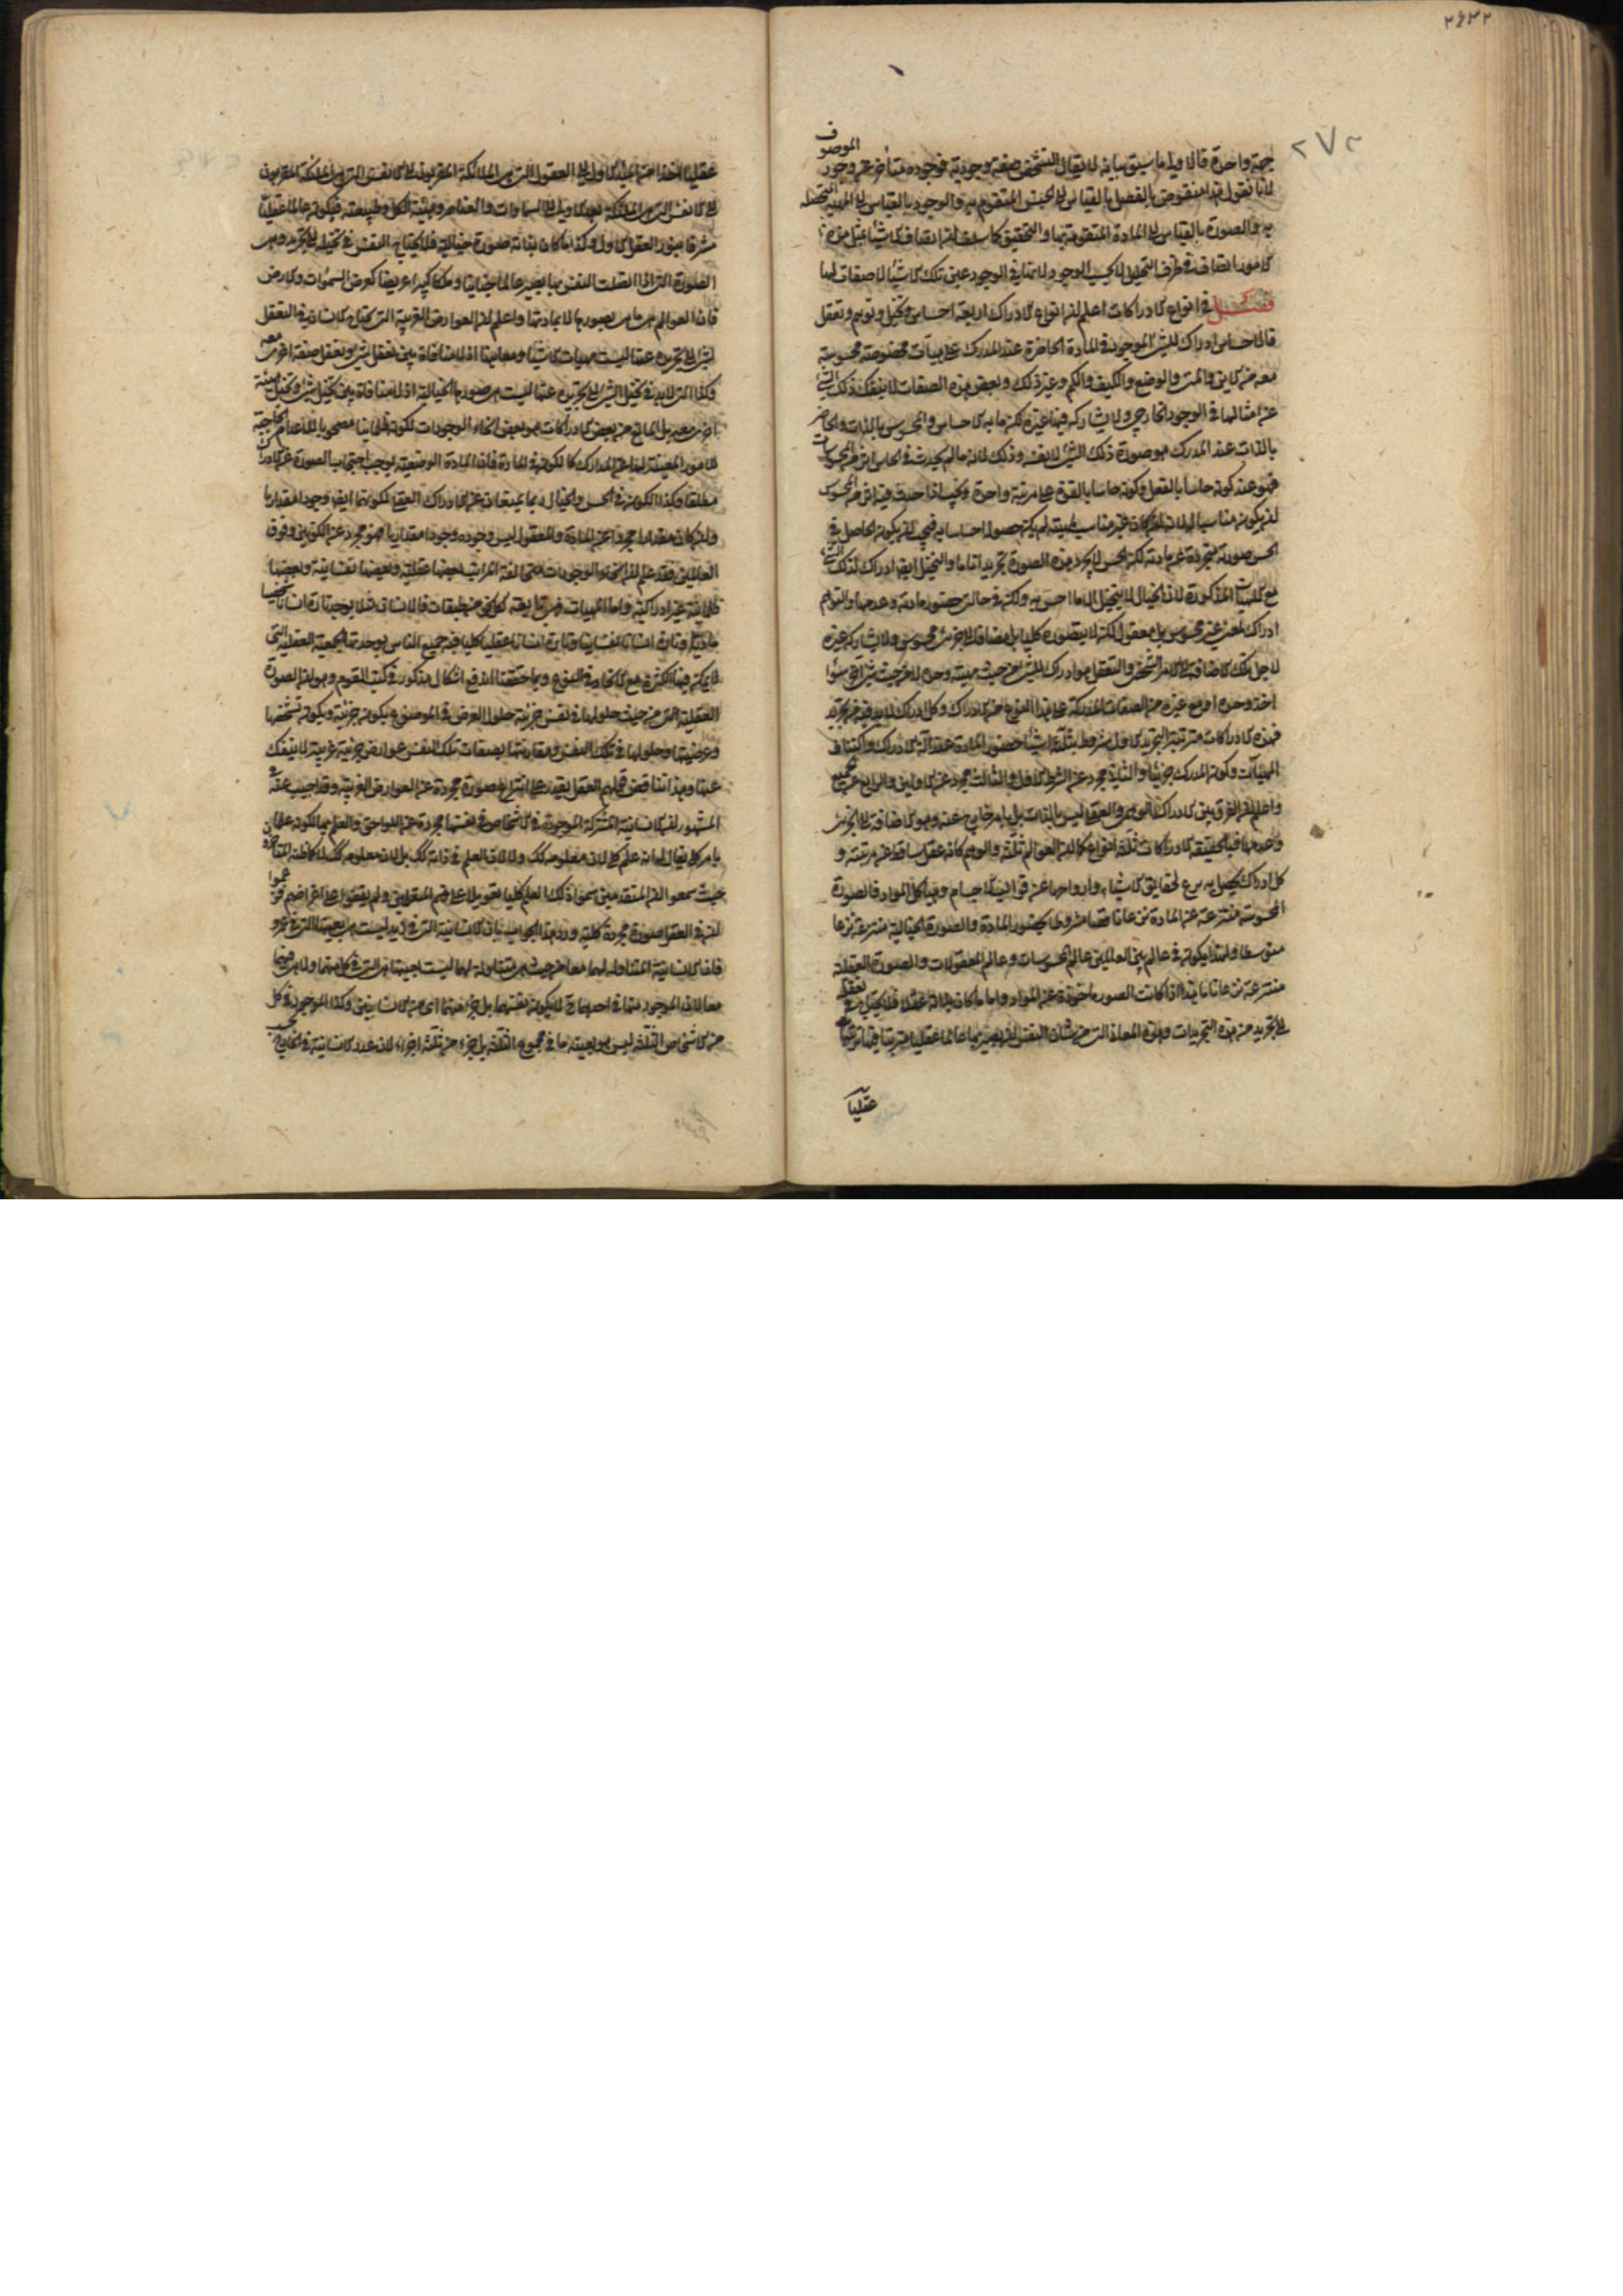 ۲۶۳۲
۲۷۲
الموصوف
جهة واحدة قالا ويل ما سيق بيانه لا يقال التشخص صفة وجودية فوجوده متأخر عن وجود
لانا نقول هذا منقوض بالفصل بالقياس الى الجنس المتقوم به والوجود بالقياس الى المهية المتحصلة
به والصورة بالقياس الى المادة المتقومة بها والتحقيق كما سلف ان اتصاف الاشياء بمثل هذه
الامور اتصاف في ظرف التحليل لا بحسب الوجود لانها في الوجود عين تلك الاشياء لا صفات لها
فصل في انواع الادراكات اعلم ان انواع الادراك اربعة احساس وتخيل وتوهم وتعقل
فالاحساس ادراك للشئ الموجود في المادة الحاضرة عند المدرك على هيآت مخصوصة محسوسة
معه من الاين والمتى والوضع والكيف والكم وغير ذلك وبعض هذه الصفات لا ينفك ذلك الشئ
عن امثالها في الوجود الخارجي ولا يشاركه فيها غيره لكن ما به الاحساس والمحسوس بالذات والحاضر
بالذات عند المدرك هو صورة ذلك الشئ لا نفسه وذلك لانه ما لم يحدث في الحاس اثر من المحسوسات
فهو عند كونه حاسا بالفعل وكونه حاسا بالقوة على مرتبة واحدة ويجب اذا حدث فيه اثر من المحسوس
ان يكون مناسبا له لانه ان كان غير مناسب لمهيته لم يكن حصوله احساسا به فيجب ان يكون الحاصل في
الحس صورته متجردة عن مادته لكن الحس لا يجرد هذه الصورة تجريدا تاما والتخيل ايضا ادراك لذلك الشئ
مع الهيآت المذكورة لان الخيال لا يتخيل الا ما احس به ولكن في حالتي حضور مادته وعدمها والتوهم
ادراك لمعنى غير محسوس بل معقول لكن لا يتصوره كليا بل مضافا الى جزئي محسوس ولا يشاركه غيره
لاجل تلك الاضافة الى الامر الشخصي والتعقل هو ادراك للشئ من حيث مهيته وحده لا من حيث شئ آخر سواء
اخذ وحده او مع غيره من الصفات المدركة على هذا النوع من الادراك وكل ادراك لابد فيه من تجريد
فهذه الادراكات مترتبة التجريد الاول مشروط بثلثة اشياء حضور المادة عند آلة الادراك واكتناف
الهيآت وكون المدرك جزئيا والثاني مجرد عن الشرط الاول والثالث مجرد عن الاولين والرابع عن الجميع
واعلم ان الفرق بين الادراك الوهمي والعقلي ليس بالذات بل بامر خارج عنه وهو الاضافة الى الجزئي
وعدمها فبالحقيقة الادراكات ثلثة انواع كما ان العوالم ثلثة والوهم كانه عقل ساقط عن مرتبته و
كل ادراك يحصل به نزع لحقايق الاشياء وارواحها عن قوالب الاجسام وهياكل المواد فالصورة
المحسوسة منتزعة عن المادة نزعا ناقصا مشروطا بحضور المادة والصورة الخيالية منتزعة نزعا
متوسطا ولهذا يكون في عالم بين العالمين عالم المحسوسات وعالم المعقولات والصورة العقلية
منتزعة نزعا تاما هذا اذا كانت الصورة ماخوذة عن المواد واما ما كان بذاته عقلا فلا يحتاج في تعقله
الى تجريد من هذه التجريدات وهذه المعاني التي من شان النفس ان يصير بها عالما عقليا مرتبا فيها ترتيبا
عقليا
عقليا اخذا من المبدأ الاول الى العقول التي هي الملائكة المقربون الى الانفس التي هي الملائكة المقربون
الى الانفس التي هي الملائكة بعد الاولى الى السماوات والعناصر وهيئة الكل وطبيعته فيكون عالما عقليا
مشرقا بنور العقل الاول وكذا ما كان لذاته صورة خيالية فلا يحتاج النفس في تخيله الى تجريد وهي
الصورة التي اذا اتصلت النفس بها يصير عالما جنانيا وملكا كبيرا عريضا كعرض السموات والارض
فان العوالم هي ما هي بصورها لا بمادتها واعلم ان العوارض الغريبة التي يحتاج الانسان في التعقل
لشئ الى تجريده عنها ليست مهيات الاشياء ومعانيها اذ لا منافاة بين تعقل شئ وتعقل صفة اخرى معه
وكذا التي لابد في تخيل الشئ الى تجريده عنها ليست هي صورها الخيالية اذ لا منافاة بين تخيل شئ وتخيل هيئة
اخرى معه بل المانع من بعض الادراكات هو بعض انحاء الوجودات لكونه ظلمانيا مصحوبا للاعدام الحاجبة
للامور المغيبة لها عن المدارك كالكون في المادة فان المادة الوضعية توجب احتجاب الصورة عن الادراك
مطلقا وكذا الكون في الحس والخيال ربما يمنعان عن الادراك العقلي لكونهما ايضا وجودا مقداريا
وان كان مقدارا مجردا عن المادة والمعقول ليس وجوده وجودا مقداريا فهو مجرد عن الكونين وفوق
العالمين فقد علم ان انحاء الوجودات متخالفة المراتب بعضها عقلية وبعضها نفسانية وبعضها
ظلمانية غير ادراكية واما المهيات فهي تابعة لكل نحو من طبقات فالانسان مثلا يوجد تارة انسانا شخصيا
ماديا وتارة انسانا نفسانيا وتارة انسانا عقليا كليا فيه جميع الناس بوحدتها الجمعية العقلية التي
لا يمكن فيها الكثرة مع الاتحاد في النوع وبما حققنا اندفع اشكال مذكور في كتب القوم وهو ان الصورة
العقلية هي من حيث حلولها في نفس جزئية حلول العرض في الموضوع يكون جزئية ويكون تشخصها
وعرضيتها وحلولها في تلك النفس ومقارنتها بصفات تلك النفس عوارض جزئية غريبة لا ينفك
عنها وهذا يناقض قولهم العقل يقدر على انتزاع صورة مجردة عن العوارض الغريبة وقد اجيب عنه في
المشهور ان الانسانية المشتركة الموجودة في الاشخاص في نفسها مجردة عن اللواحق والعلم بها لكونه علما
بامر كلي يقال له انه علم كلي لان معلومه كك ولا لان العلم في ذاته كك بل لان معلومه كك لما كان المتاخرون
حيث سمعوا ان المتقدمين سموا ذلك العلم كليا تعويلا على فهم المتعلمين ولم يقفوا على اغراضهم زعموا
ان في العقل صورة مجردة كلية ورد هذا الجواب بان الانسانية التي في زيد ليست هي بعينها التي في عمرو
فان الانسانية المتناولة لهما معا من حيث هي متناولة لهما ليست بعينها هي التي في كل منهما ولا هي فيهما
معا لان الموجود منها في احدهما ح لا يكون نفسها بل جزء منها اي من الانسانيتين وكذا الموجود في كل
من الاشخاص الثلثة ليس هو بعينه ما في مجموع الثلثة بل جزء من ثلثة اجزاء لان عدد الانسانية في الخارج بحسب